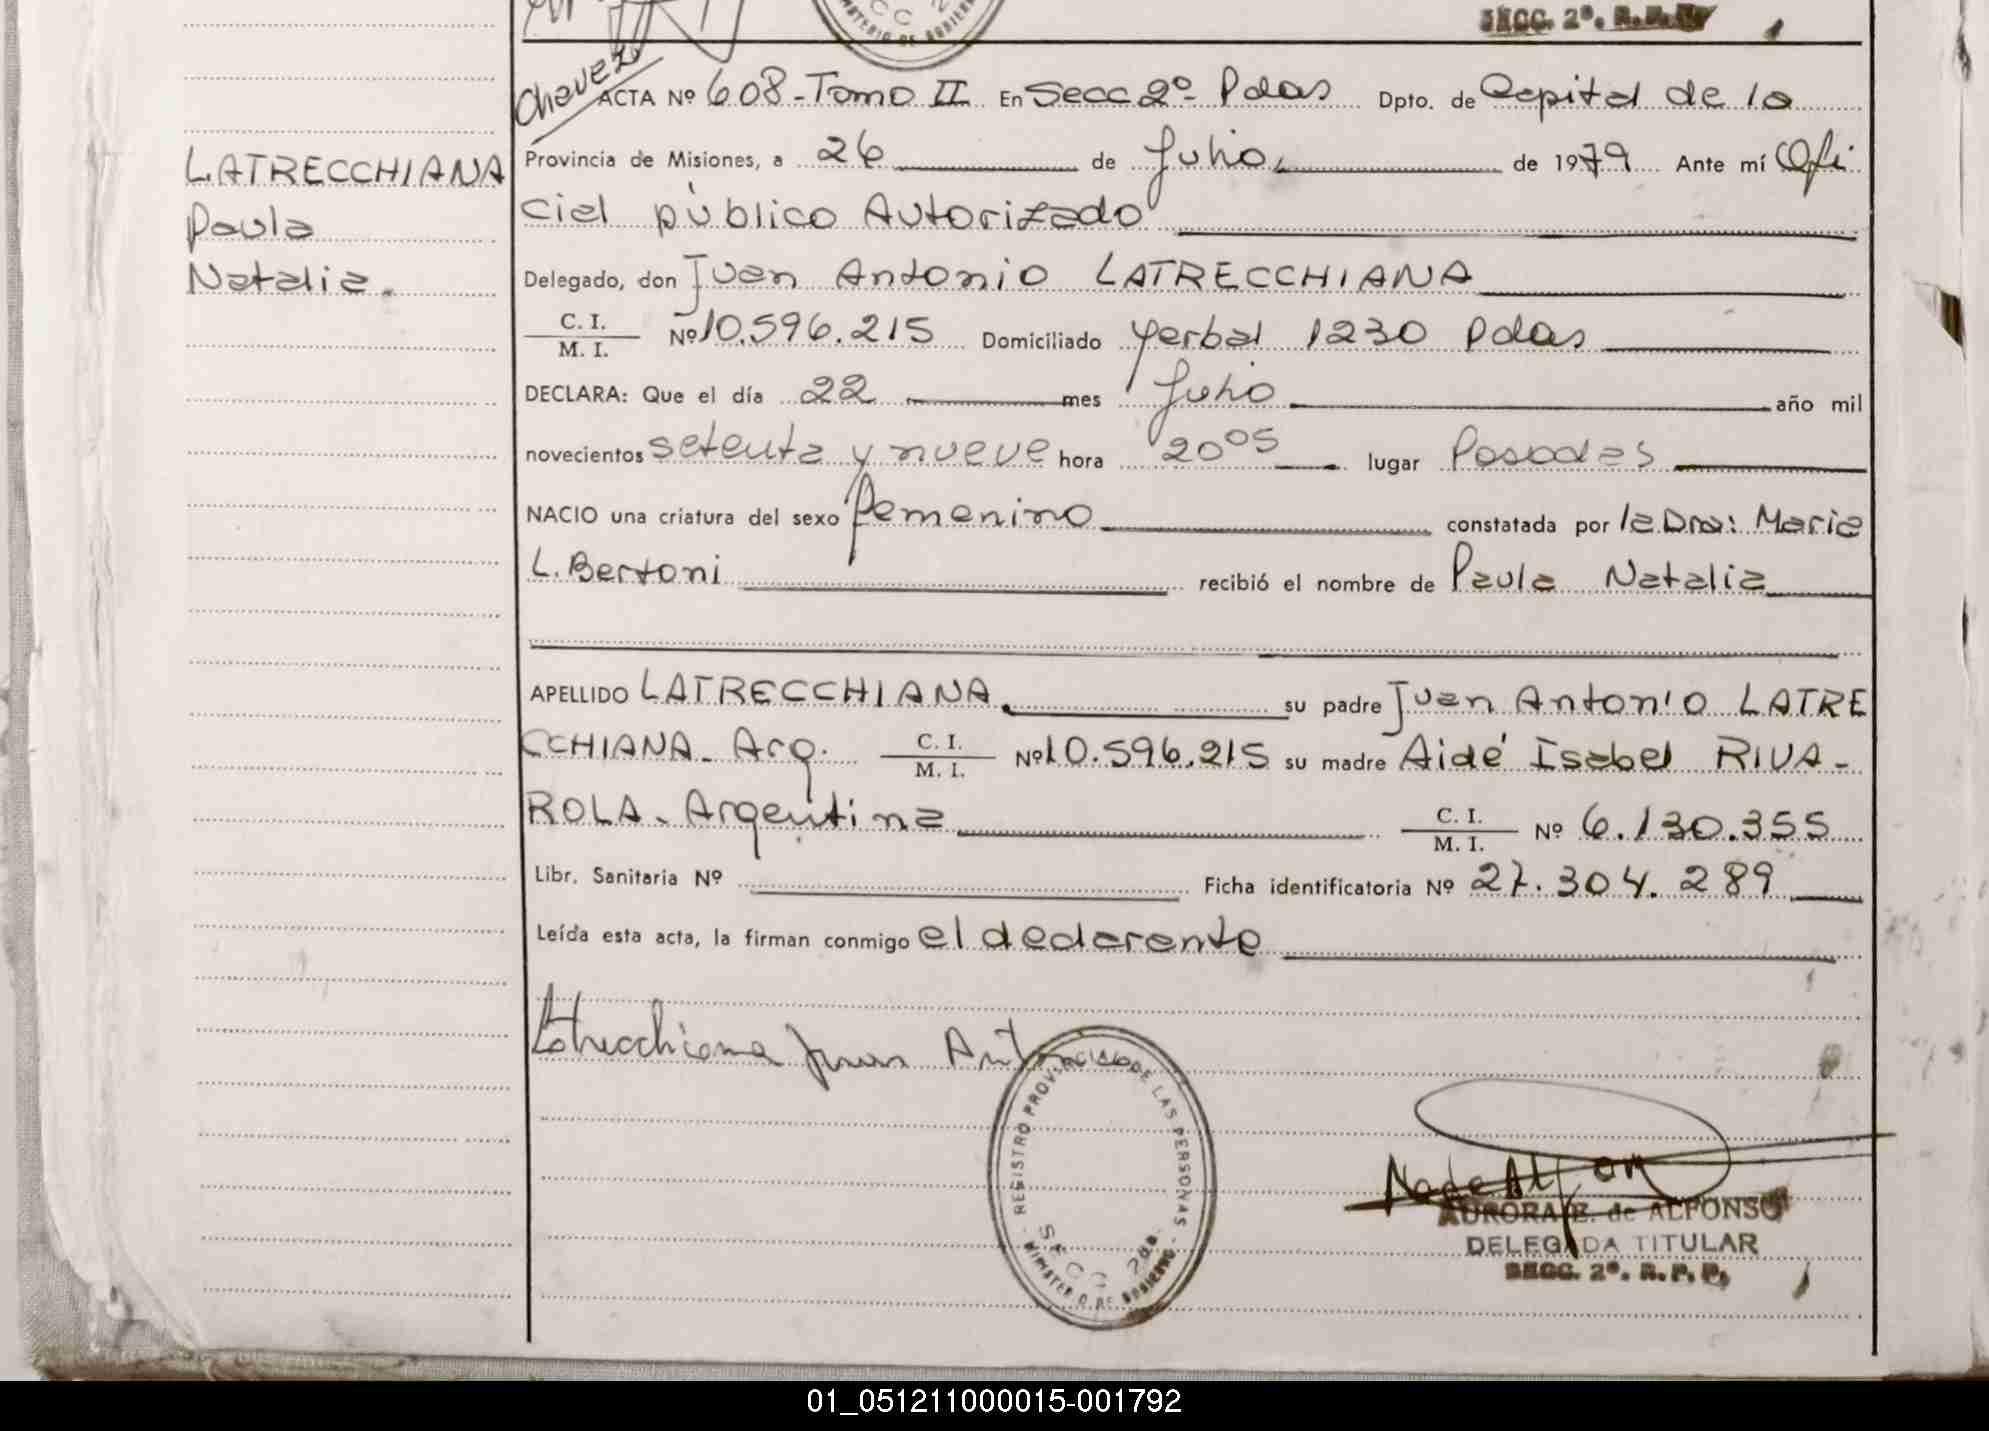 SECC. 2ª. R.P.P.
Chavez
ACTA Nº 608-Tomo II En Secc 2º- Pdas Dpto. de Capital de la
LATRECCHIANA
Paula
Natalia.
Provincia de Misiones, a 26 de Julio, de 1979 Ante mí Ofi
cial público Autorizado
Delegado, don Juan Antonio LATRECCHIANA
C. I.
M. I. Nº 10.596.215 Domiciliado Yerbal 1230 Pdas
DECLARA: Que el día 22 mes Julio año mil
novecientos setenta y nueve hora 20 05 lugar Posadas
NACIO una criatura del sexo femenino constatada por la Dra: Maria
L. Bertoni recibió el nombre de Paula Natalia
APELLIDO LATRECCHIANA. su padre Juan Antonio LATRE
CCHIANA- Arg. C. I.
M. I. Nº 10.596.215 su madre Aidé Isabel RIVA-
ROLA- Argentina C. I.
M. I. Nº 6.130.355
Libr. Sanitaria Nº Ficha identificatoria Nº 27.304.289
Leída esta acta, la firman conmigo el declarante
Latrecchiana Juan Antonio
REGISTRO PROVINCIAL DE LAS PERSONAS
SECC 2da.
MINISTERIO DE GOBIERNO
AURORA E. de ALFONSO
DELEGADA TITULAR
SECC. 2ª. R. P. P.
01_051211000015-001792